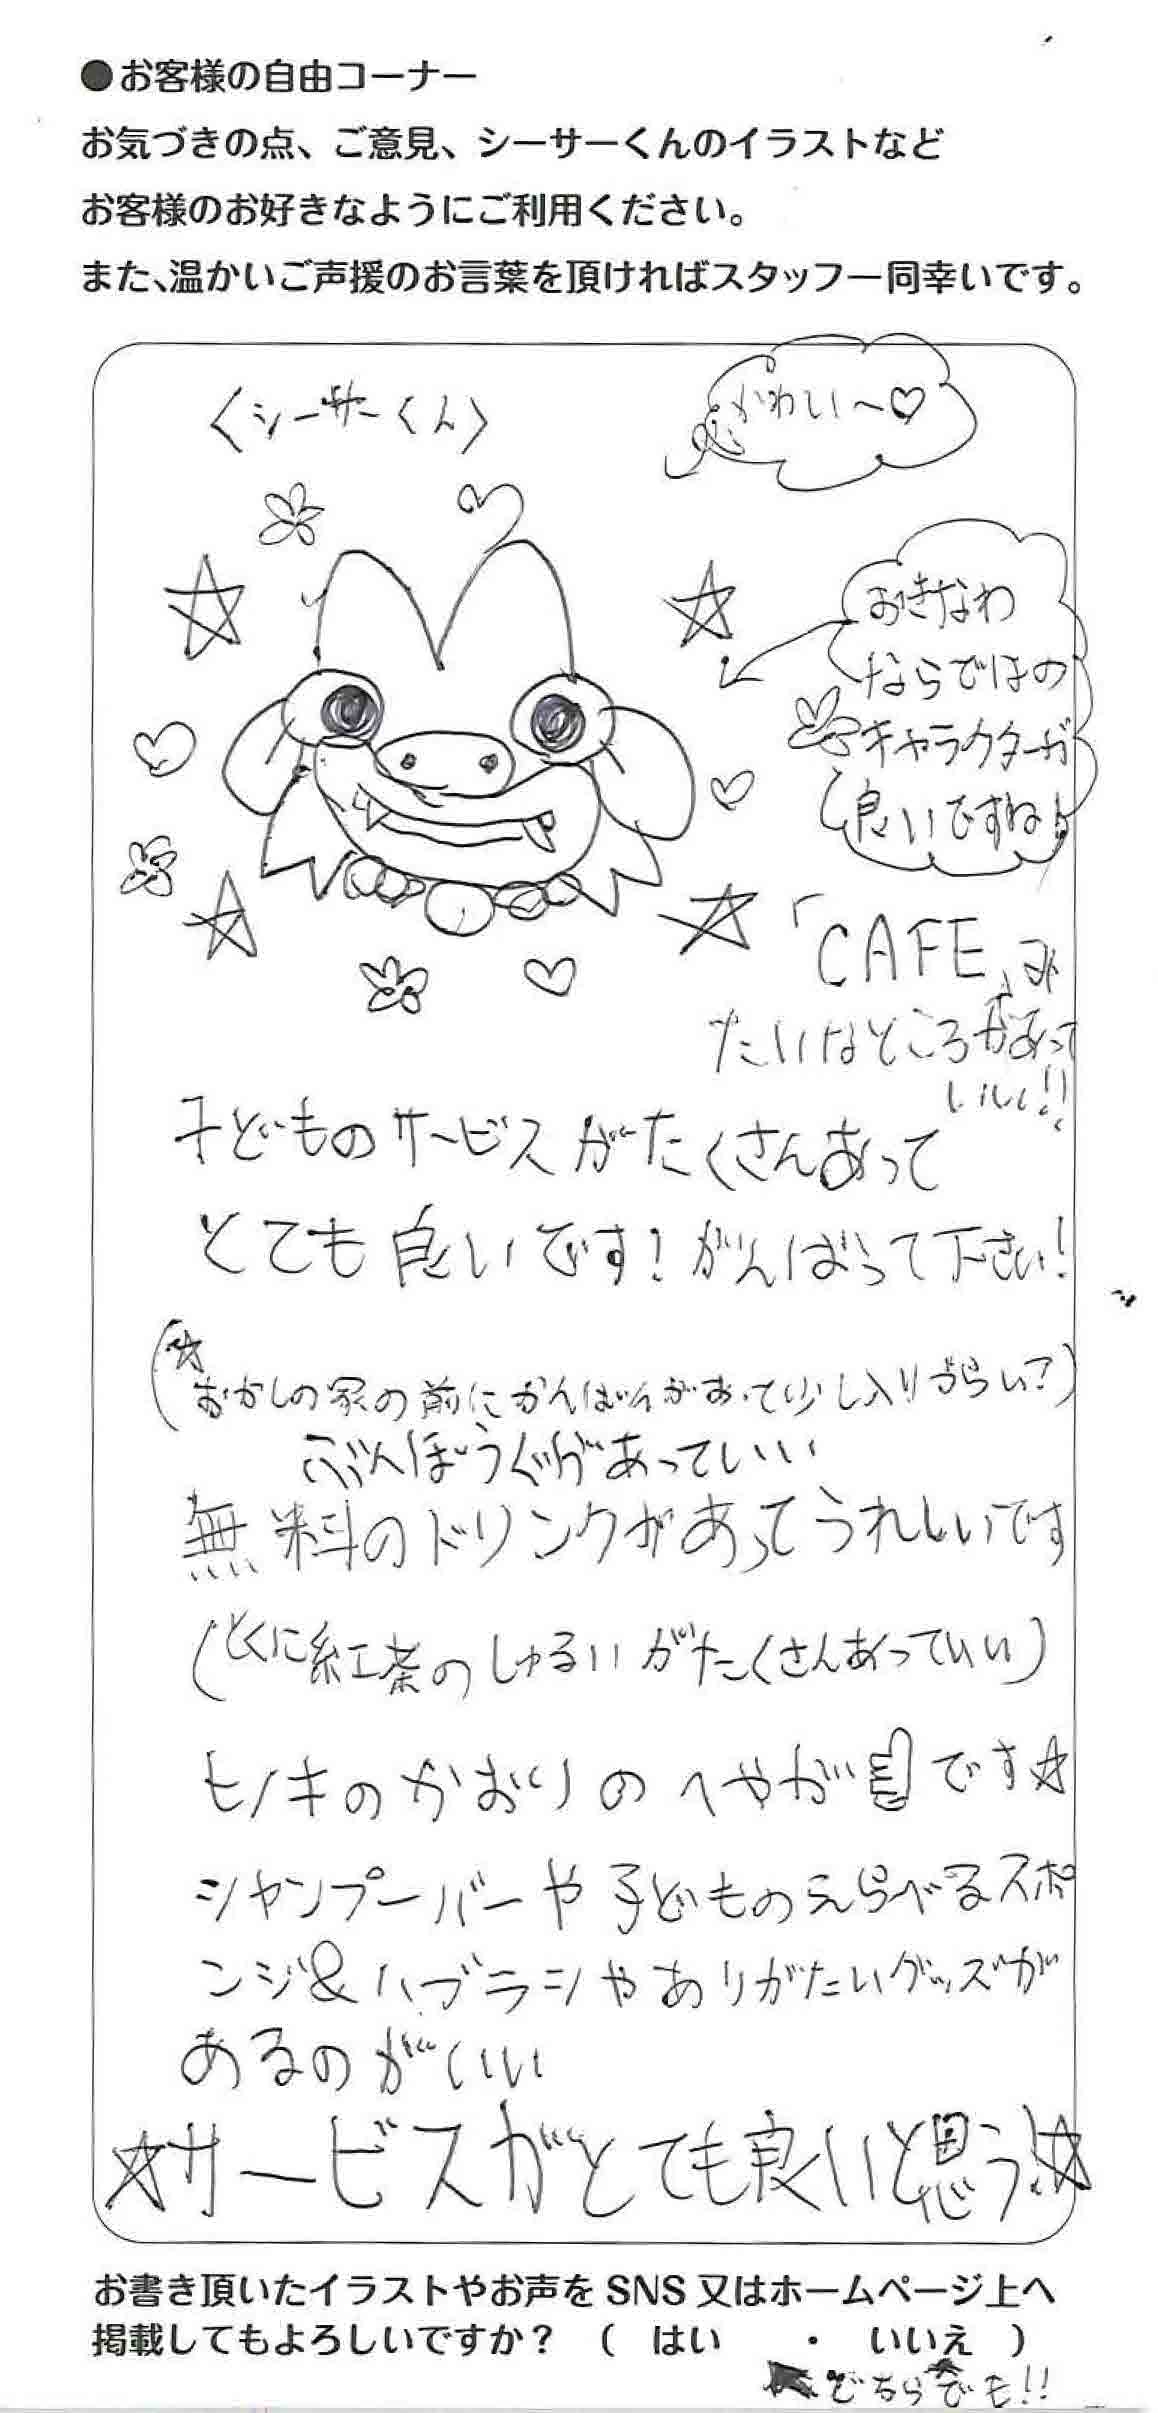 ●お客様の自由コーナー
お気づきの点、ご意見、シーサーくんのイラストなど
お客様のお好きなようにご利用ください。
また、温かいご声援のお言葉を頂ければスタッフ一同幸いです。
〈シーサーくん〉
かわいい〜♡
おきなわ
ならではの
キャラクターが
良いですね!
「CAFE」み
たいなところがあって
いい!!
子どものサービスがたくさんあって
とても良いです!がんばって下さい!
(☆おかしの家の前にかんばんがあって少し入りづらい?)
ぶんぼうぐがあっていい
無料のドリンクがあってうれしいです
(とくに紅茶のしゅるいがたくさんあっていい)
ヒノキのかおりのへやが👍です☆
シャンプーバーや子どものえらべるスポ
ンジ&ハブラシやありがたいグッズが
あるのがいい
☆サービスがとても良いと思う!☆
お書き頂いたイラストやお声をSNS又はホームページ上へ
掲載してもよろしいですか? ( はい ・ いいえ )
どちらでも!!